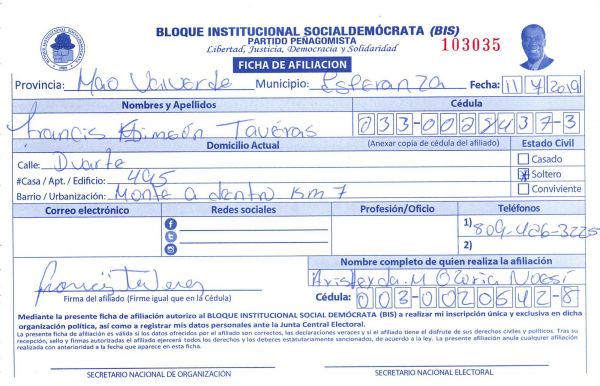 BLOQUE INSTITUCIONAL SOCIALDEMÓCRATA (BIS)
PARTIDO PEÑAGOMISTA
Libertad, Justicia, Democracia y Solidaridad
103035
FICHA DE AFILIACION
Provincia: Mao Valverde Municipio: Esperanza Fecha: 11/7/2019
Nombres y Apellidos Cédula
Francis Simeón Taveras 033-0028437-3
Domicilio Actual (Anexar copia de cédula del afiliado) Estado Civil
Calle: Duarte Casado
#Casa / Apt. / Edificio: 495 Soltero
Barrio / Urbanización: Monte a dentro Km 7 Conviviente
Correo electrónico Redes sociales Profesión/Oficio Teléfonos
1) 809-426-3225
2)
Nombre completo de quien realiza la afiliación
M
Firma del afiliado (Firme igual que en la Cédula)
Cédula: 003-0020542-8
Mediante la presente ficha de afiliación autorizo al BLOQUE INSTITUCIONAL SOCIAL DEMÓCRATA (BIS) a realizar mi inscripción única y exclusiva en dicha
organización política, así como a registrar mis datos personales ante la Junta Central Electoral.
La presente ficha de afiliación es válida si los datos ofrecidos por el afiliado son correctos, las declaraciones veraces y si el afiliado tiene el disfrute de sus derechos civiles y políticos. Tras su
recepción, sello y firmas autorizadas el afiliado ejercerá todos los derechos y los deberes estatutariamente sancionados, de acuerdo a la ley. La presente afiliación anula cualquier afiliación
realizada con anterioridad a la fecha que aparece en esta ficha.
SECRETARIO NACIONAL DE ORGANIZACIÓN SECRETARIO NACIONAL ELECTORAL